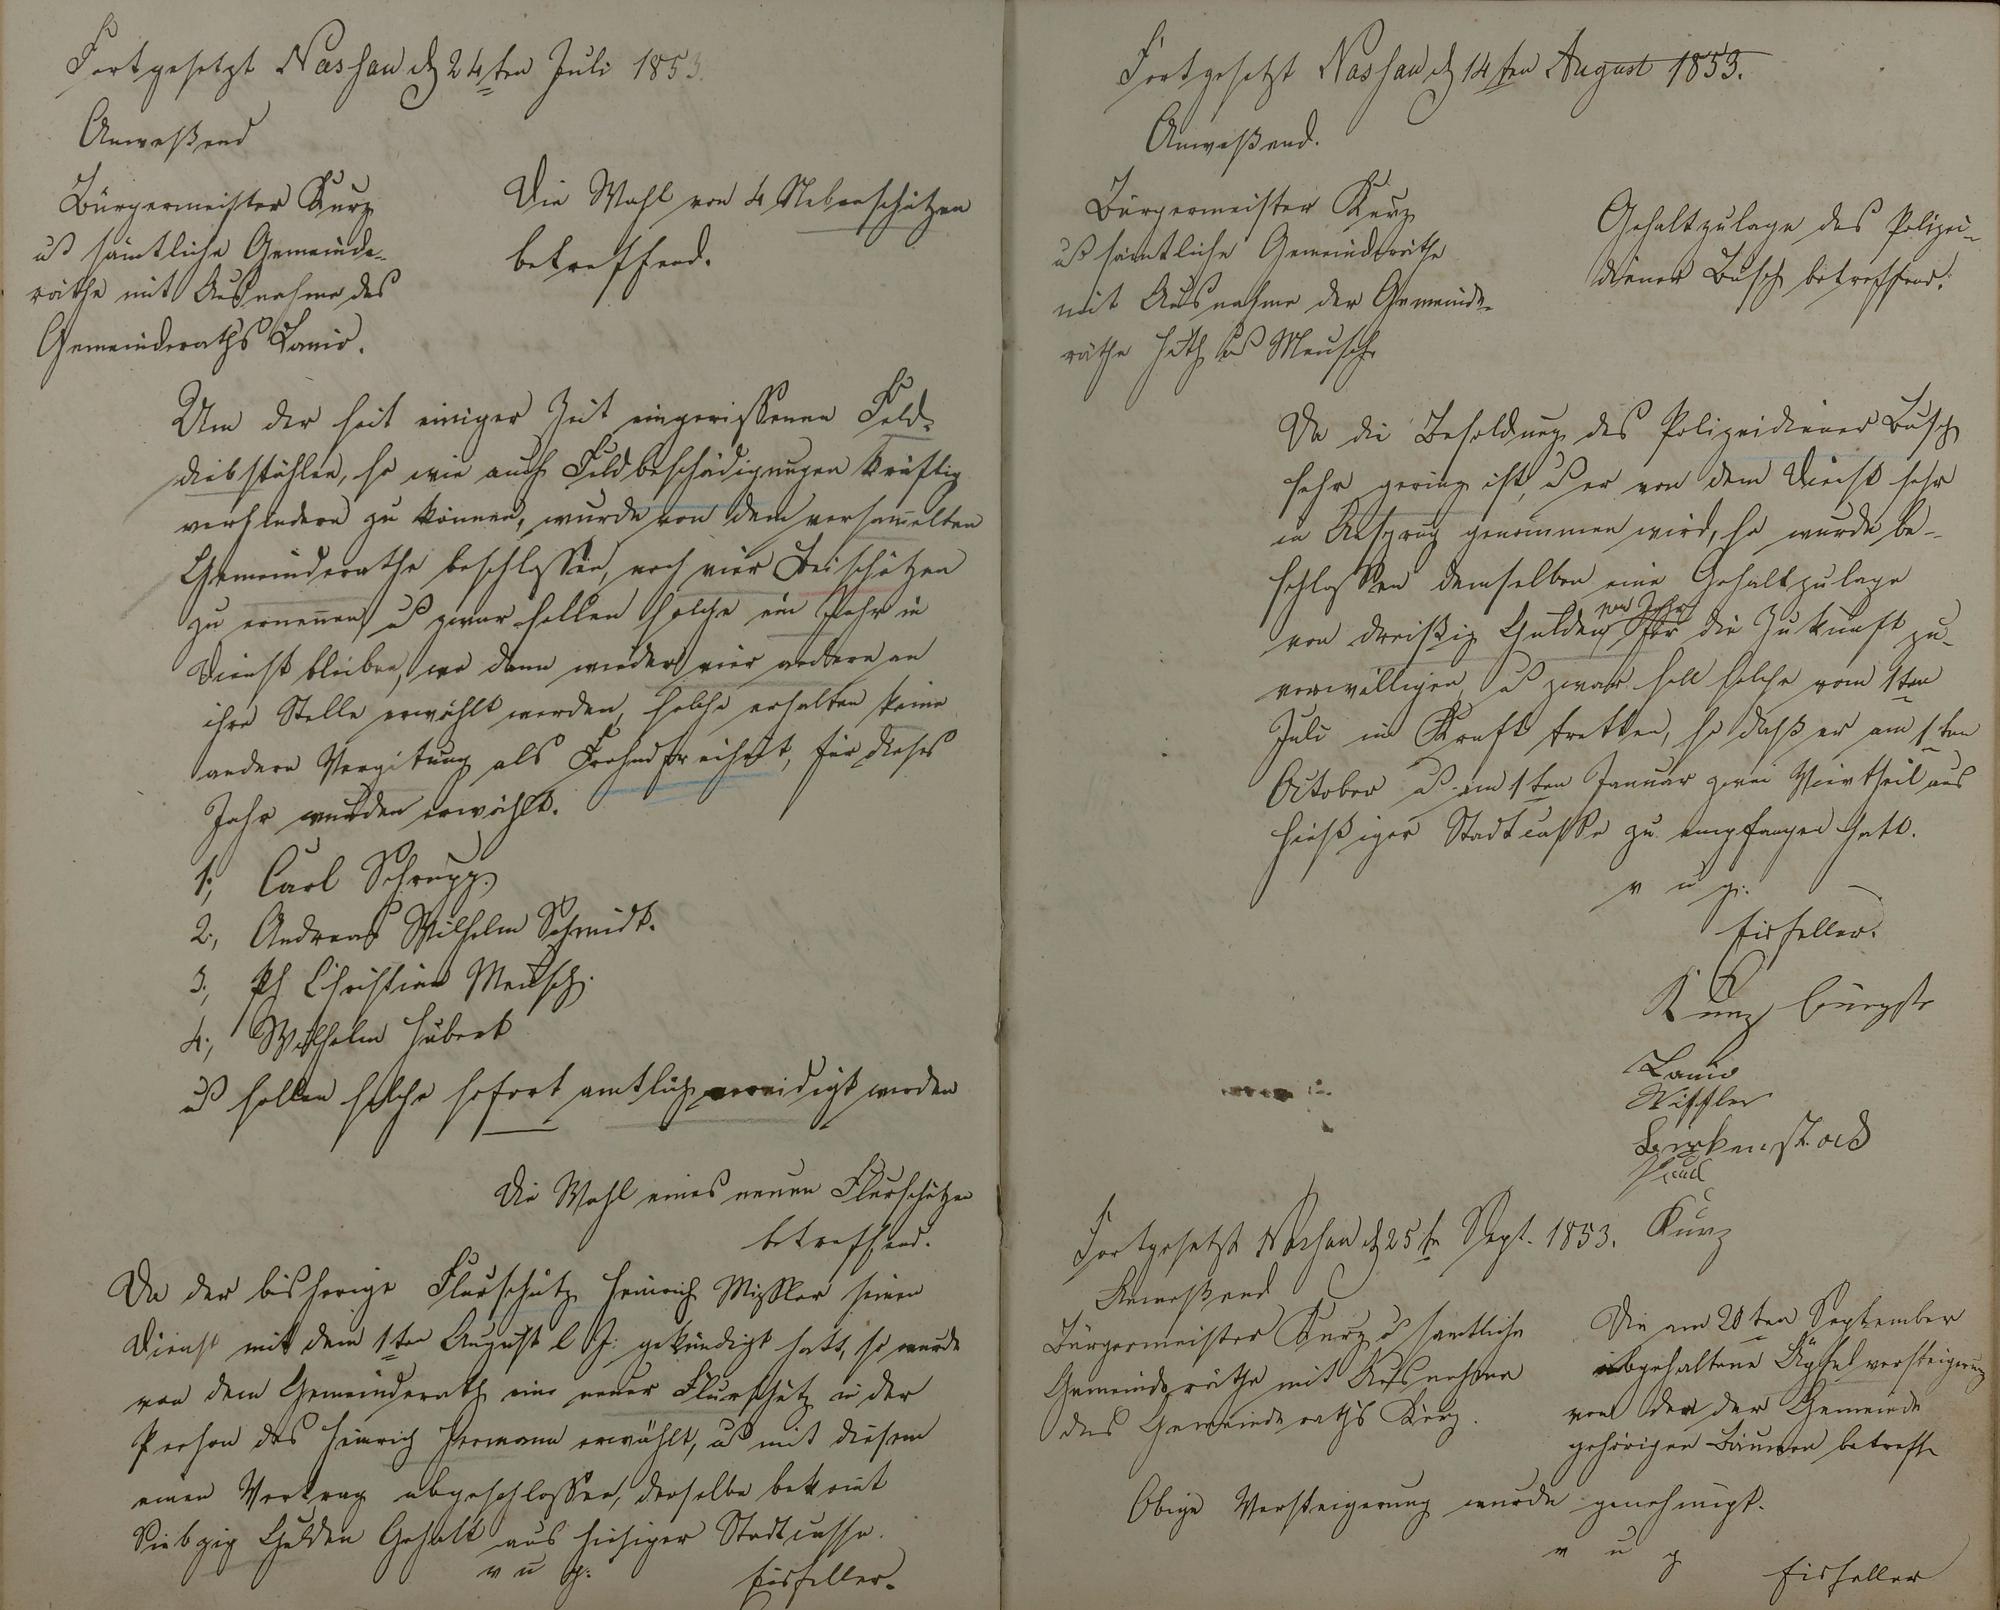 Fortgesetzt Nassau d 24ten Juli 1853.
Anweßend
Bürgermeister Kurz
u sämtliche Gemeinde-
räthe mit Ausnahme des
Gemeinderaths Lanio.
Die Wahl von 4 Nebenschützen
betreffend.
Um der seit einiger Zeit eingerissenen Feld-
diebstählen, so wie auch Feldbeschädigungen kräftig
verhindern zu können, wurde von dem versam̄elten
Gemeinderathe beschlossen, noch vier Beischützen
zu ernen̄en, u zwar sollen solche ein Jahr in
Dienst bleiben, wo dann wieder vier andere an
ihre Stelle erwählt werden, solche erhalten keine
andere Vergitung als Frohndfreiheit, für dieses
Jahr wurden erwählt.
1., Carl Schrupp.
2., Andreas Wilhelm Schmidt.
3., Ph Christian Meusch.
4., Wilhelm Hubert
u sollen solche sofort amtlich vereidigt werden
Die Wahl eines neuen Flurschützen
betreffend.
Da der bisherige Flurschütz Heinrich Mißler seinen
Dienst mit dem 1ten August l J. gekündigt hatt, so wurde
von dem Gemeinderath ein neuer Flurschütz in der
Person des Heinrich Hermann erwählt, u mit diesem
einen Vertrag abgeschlossen, derselbe bekomt
Siebzig Gulden Gehalt aus hiesiger Stadtcasse.
v u g.
Eisfeller.
Fortgesetzt Nassau d 14ten August 1853.
Anweßend.
Bürgermeister Kurz
u sämtliche Gemeinderäthe
mit Ausnahme der Gemeinde-
räthe Huth u Meusch
Gehaltzulage des Polizei-
diener Busch betreffend.
Da die Besoldung des Polizeidiener Busch
sehr gering ist, u er von dem Dienst sehr
in Anspruch genommen wird, so wurde be-
schlossen demselben eine Gehaltzulage
von dreißig Gulden pro Jahr für die Zukunft zu
verwilligen, u zwar soll solche vom 1ten
Juli in Kraft tretten, so daß er am 1ten
October u am 1ten Januar zwei Viertheil aus
hießiger Stadtcasse zu empfangen hatt.
v u g.
Eisfeller.
Kurz Bürgstr
Lanio
Birkenstock
Kurz
Fortgesetzt Nassau d 25t Sept. 1853.
Anweßend
Bürgermeister Kurz u samtliche
Gemeinderäthe mit Ausnahme
des Gemeinderaths Kurz.
Die am 20ten September
abgehaltene Äpfelversteigerung
von den der Gemeinde
gehörigen Bäumen betreff
Obige Versteigerung wurde genehmigt.
v u g
Eisfeller